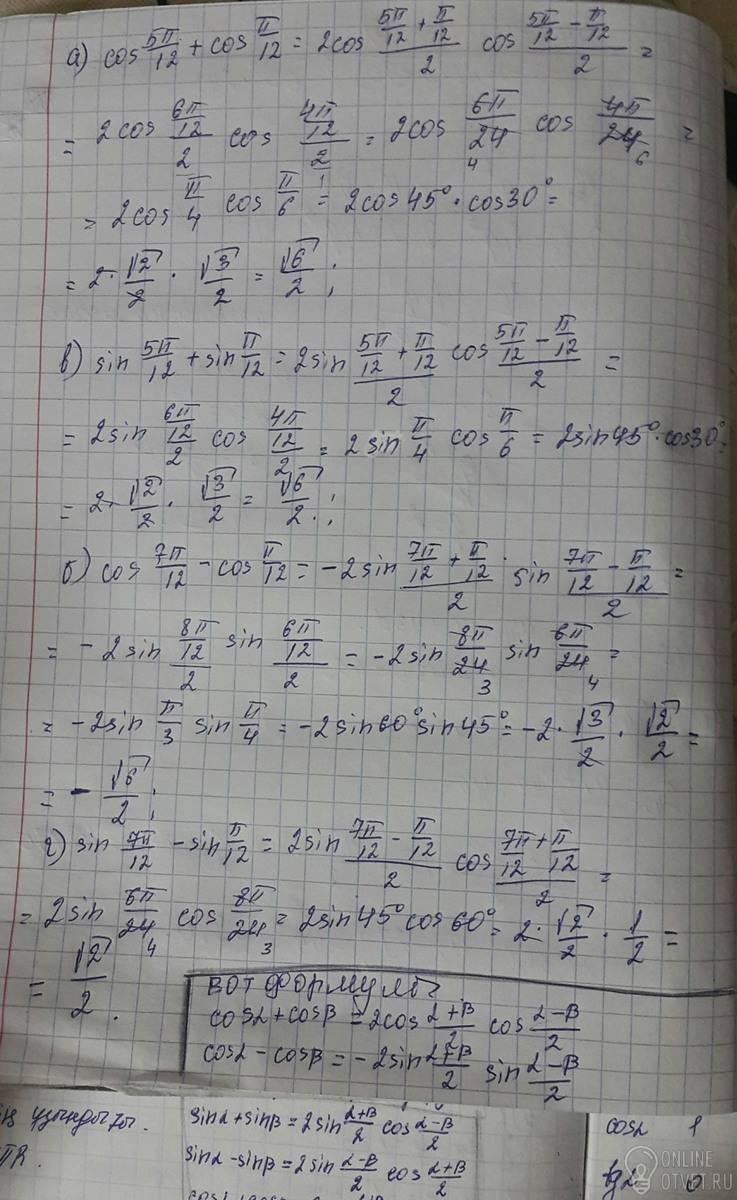 а) cos 5π/12 + cos π/12 = 2cos (5π/12 + π/12)/2 cos (5π/12 − π/12)/2 =
= 2cos (6π/12)/2 cos (4π/12)/2 = 2cos 6π/24 4 cos 4π/24 6 =
= 2cos π/4 cos π/6 = 2cos45°·cos30° =
= 2·√2/2 · √3/2 = √6/2 ;
в) sin 5π/12 + sin π/12 = 2sin (5π/12 + π/12)/2 cos (5π/12 − π/12)/2 =
= 2sin (6π/12)/2 cos (4π/12)/2 = 2sin π/4 cos π/6 = 2sin45°·cos30° =
= 2·√2/2 · √3/2 = √6/2 ;
б) cos 7π/12 − cos π/12 = −2sin (7π/12 + π/12)/2 · sin (7π/12 − π/12)/2 =
= −2sin (8π/12)/2 sin (6π/12)/2 = −2sin 8π/24 3 sin 6π/24 4 =
= −2sin π/3 sin π/4 = −2sin60°sin45° = −2·√3/2 · √2/2 =
= −√6/2 ;
г) sin 7π/12 − sin π/12 = 2sin (7π/12 − π/12)/2 cos (7π/12 + π/12)/2 =
= 2sin 6π/24 4 cos 8π/24 3 = 2sin45°cos60° = 2·√2/2 · 1/2 =
= √2/2 .
вот формулы
cosα + cosβ = 2cos (α+β)/2 cos (α−β)/2
cosα − cosβ = −2sin (α+β)/2 sin (α−β)/2
sinα + sinβ = 2sin (α+β)/2 cos (α−β)/2
sinα − sinβ = 2sin (α−β)/2 cos (α+β)/2
cosα 1
tgα 0
ONLINE
OTVET.RU